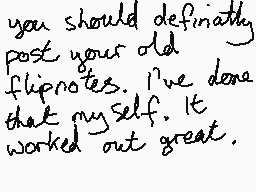 you should definatly
post your old
flipnotes. I've done
that my self. It
worked out great.